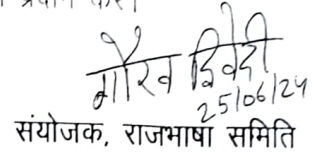 प्रदान करें।
गौरव द्विवेदी
25/06/24
संयोजक, राजभाषा समिति